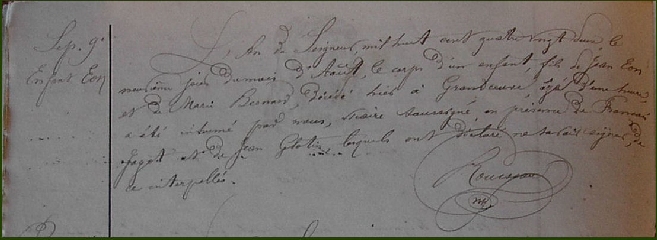 Sép. 9e
Enfant Eon
L'An du Seigneur, mil huit cent quatre vingt deux le
neuvième jour du mois d'Août, le corps d'un enfant, fils de Jean Eon
et de Marie Bernard, décédé hier à âgé d'une heure,
a été inhumé par nous, Vicaire soussigné en présence de François
et de Jean lesquels ont déclaré ne savoir signer, de
ce interpellés.